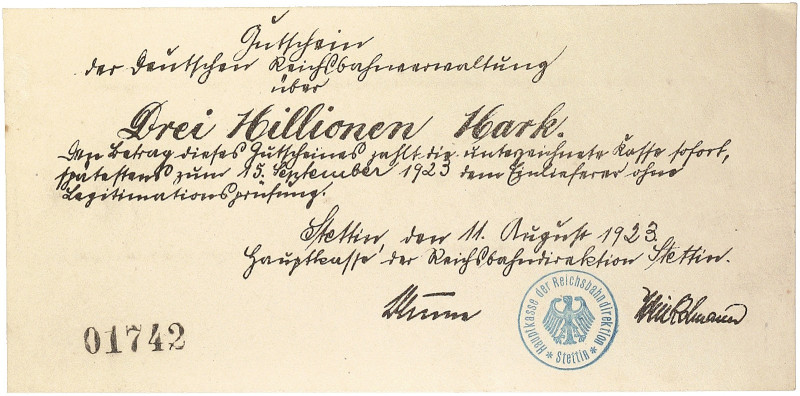 Gutschein
der Deutschen Reichsbahnverwaltung
über
Drei Millionen Mark.
Den Betrag dieses Gutscheines zahlt die unterzeichnete Kasse sofort,
spätestens zum 15. September 1923 dem Einlieferer ohne
Legitimationsprüfung.
Stettin, den 11. August 1923.
Hauptkasse der Reichsbahndirektion Stettin.
Hauptkasse der Reichsbahndirektion
* Stettin *
01742